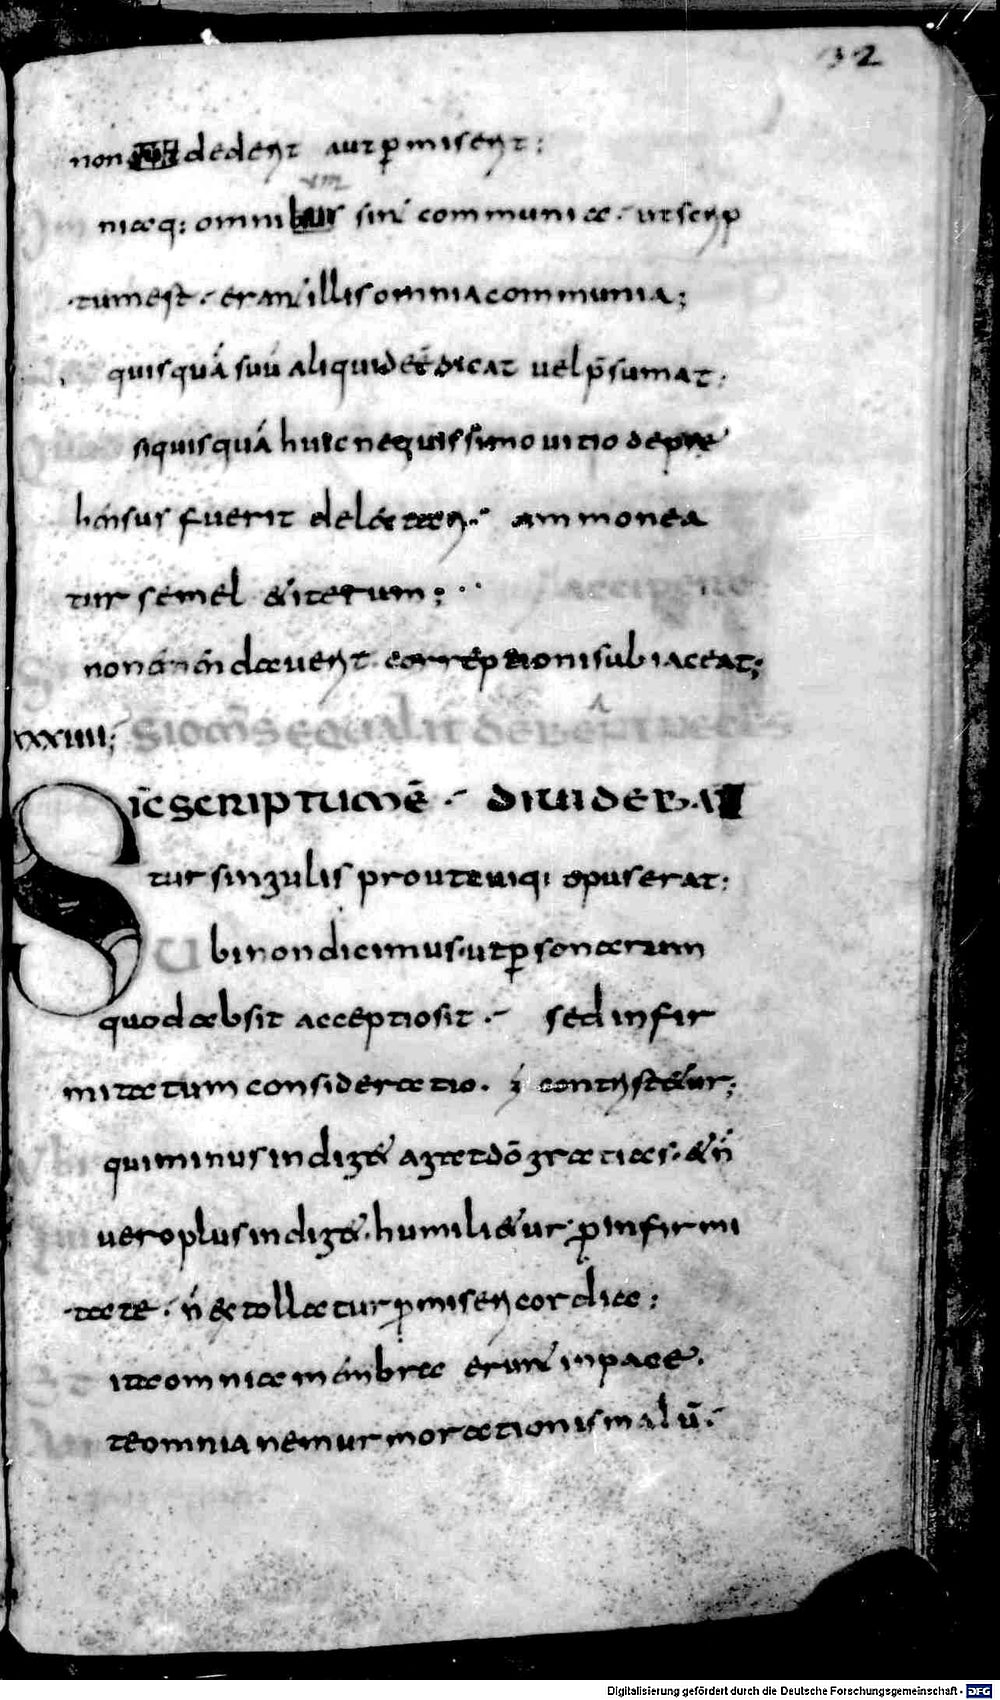 32
non dederit aut ꝑmiserit;
niaq: omnibus sint communia · ut scrip
tum est · erant illis omnia communia;
quisquā́ suū aliquid eē dicat vel p̄sumat:
si quisquā́ huic nequissimo vitio depre
hensus fuerit delectari · ammonea
tur semel & iterum;
non emendaverit correptioni subiaceat;
xxxiiii;
SI OMS EQUALIT̄ DEBEANT NECES
SIC̄ SCRIPTUM Ē · DIVIDEBA
tur singulis prout cuiq; opus erat;
Ubi non dicimus · ut ꝑsonarum
quod absit acceptio sit · sed infir
mitatum consideratio. contristetur;
qui minus indiget agat dō gratias · & ñ
vero plus indiget · humilietur ꝑ infirmi
tate · ñ extollatur ꝑ misericordia;
ita omnia membra erunt in pace.
te omnia ne murmorationis malū ·
Digitalisierung gefördert durch die Deutsche Forschungsgemeinschaft - DFG